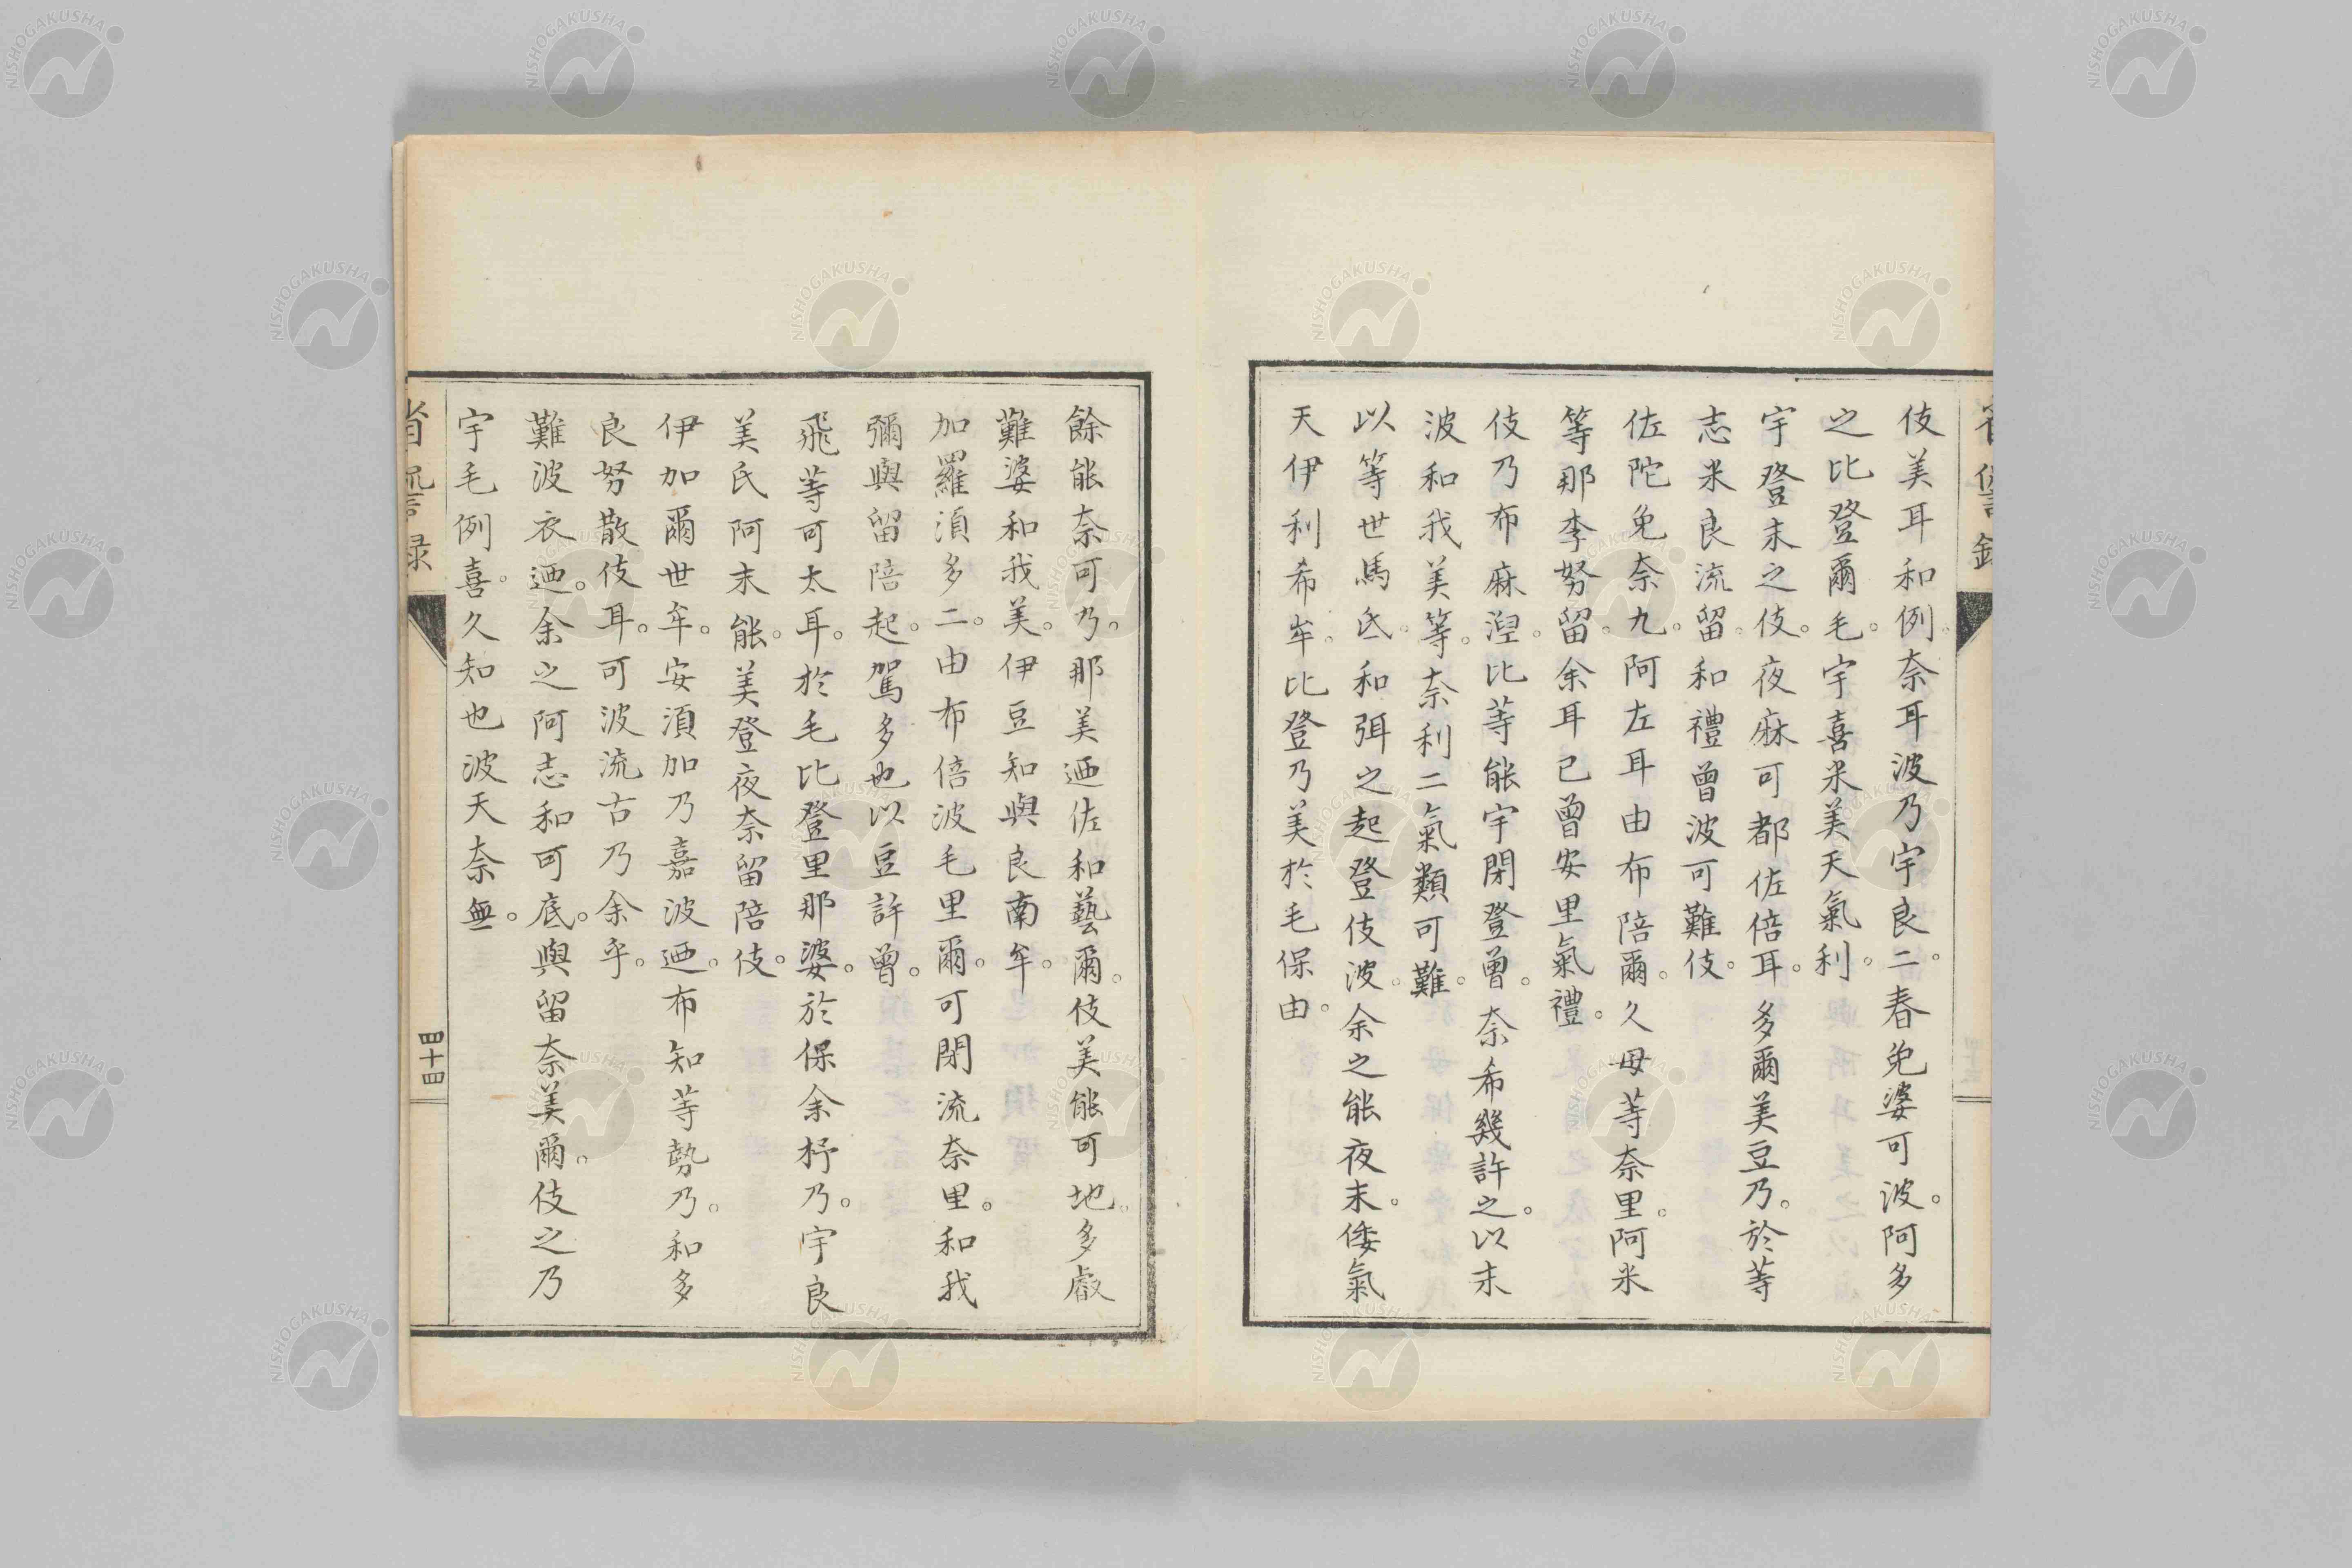 伎美耳和例。奈耳波乃宇良二。春免婆可波。阿多
之比登爾毛。宇喜米美天氣利。
宇登末之伎。夜麻可都佐倍耳。多爾美豆乃。於等
志米良流留。和禮曾波可難伎。
佐陀免奈九。阿左耳由布陪爾。久毋等奈里。阿米
等那李努留。余耳已曾安里氣禮。
伎乃布麻湼。比等能宇閉登曾。奈希幾許之。以末
波和我美等。奈利二氣類可難。
以等世馬氐。和弭之起登伎波。余之能夜末。倭氣
天伊利希牟。比登乃美於毛保由。
餘能奈可乃。那美迺佐和藝爾。伎美能可地。多叡
難婆和我美。伊豆知與良南牟。
加羅須多二。由布倍波毛里爾。可閉流奈里。和我
彌與留陪起。駕多也以豆許曾。
飛等可太耳。於毛比登里那婆。於保余杼乃。宇良
美氏阿末能。美登夜奈留陪伎。
伊加爾世牟。安須加乃嘉波迺。布知等勢乃。和多
良努散伎耳。可波流古乃余乎。
難波衣迺。余之阿志和可底。與留奈美爾。伎之乃
宇毛例喜。久知也波天奈無。
省諐録
四十四